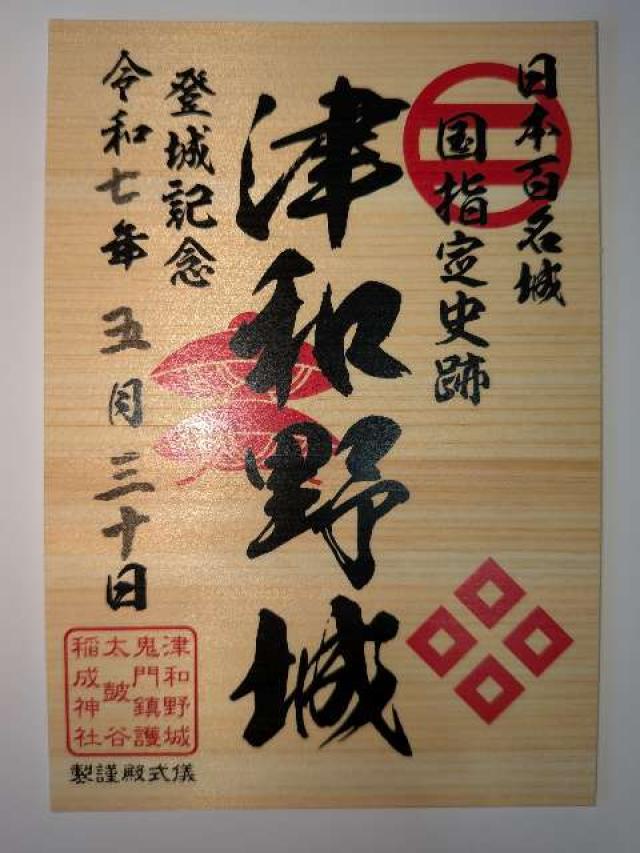 日本百名城
国指定史跡
津和野城
登城記念
令和七年 五月 三十日
津和野城
鬼門鎮護
太皷谷
稲成神社
儀式殿謹製